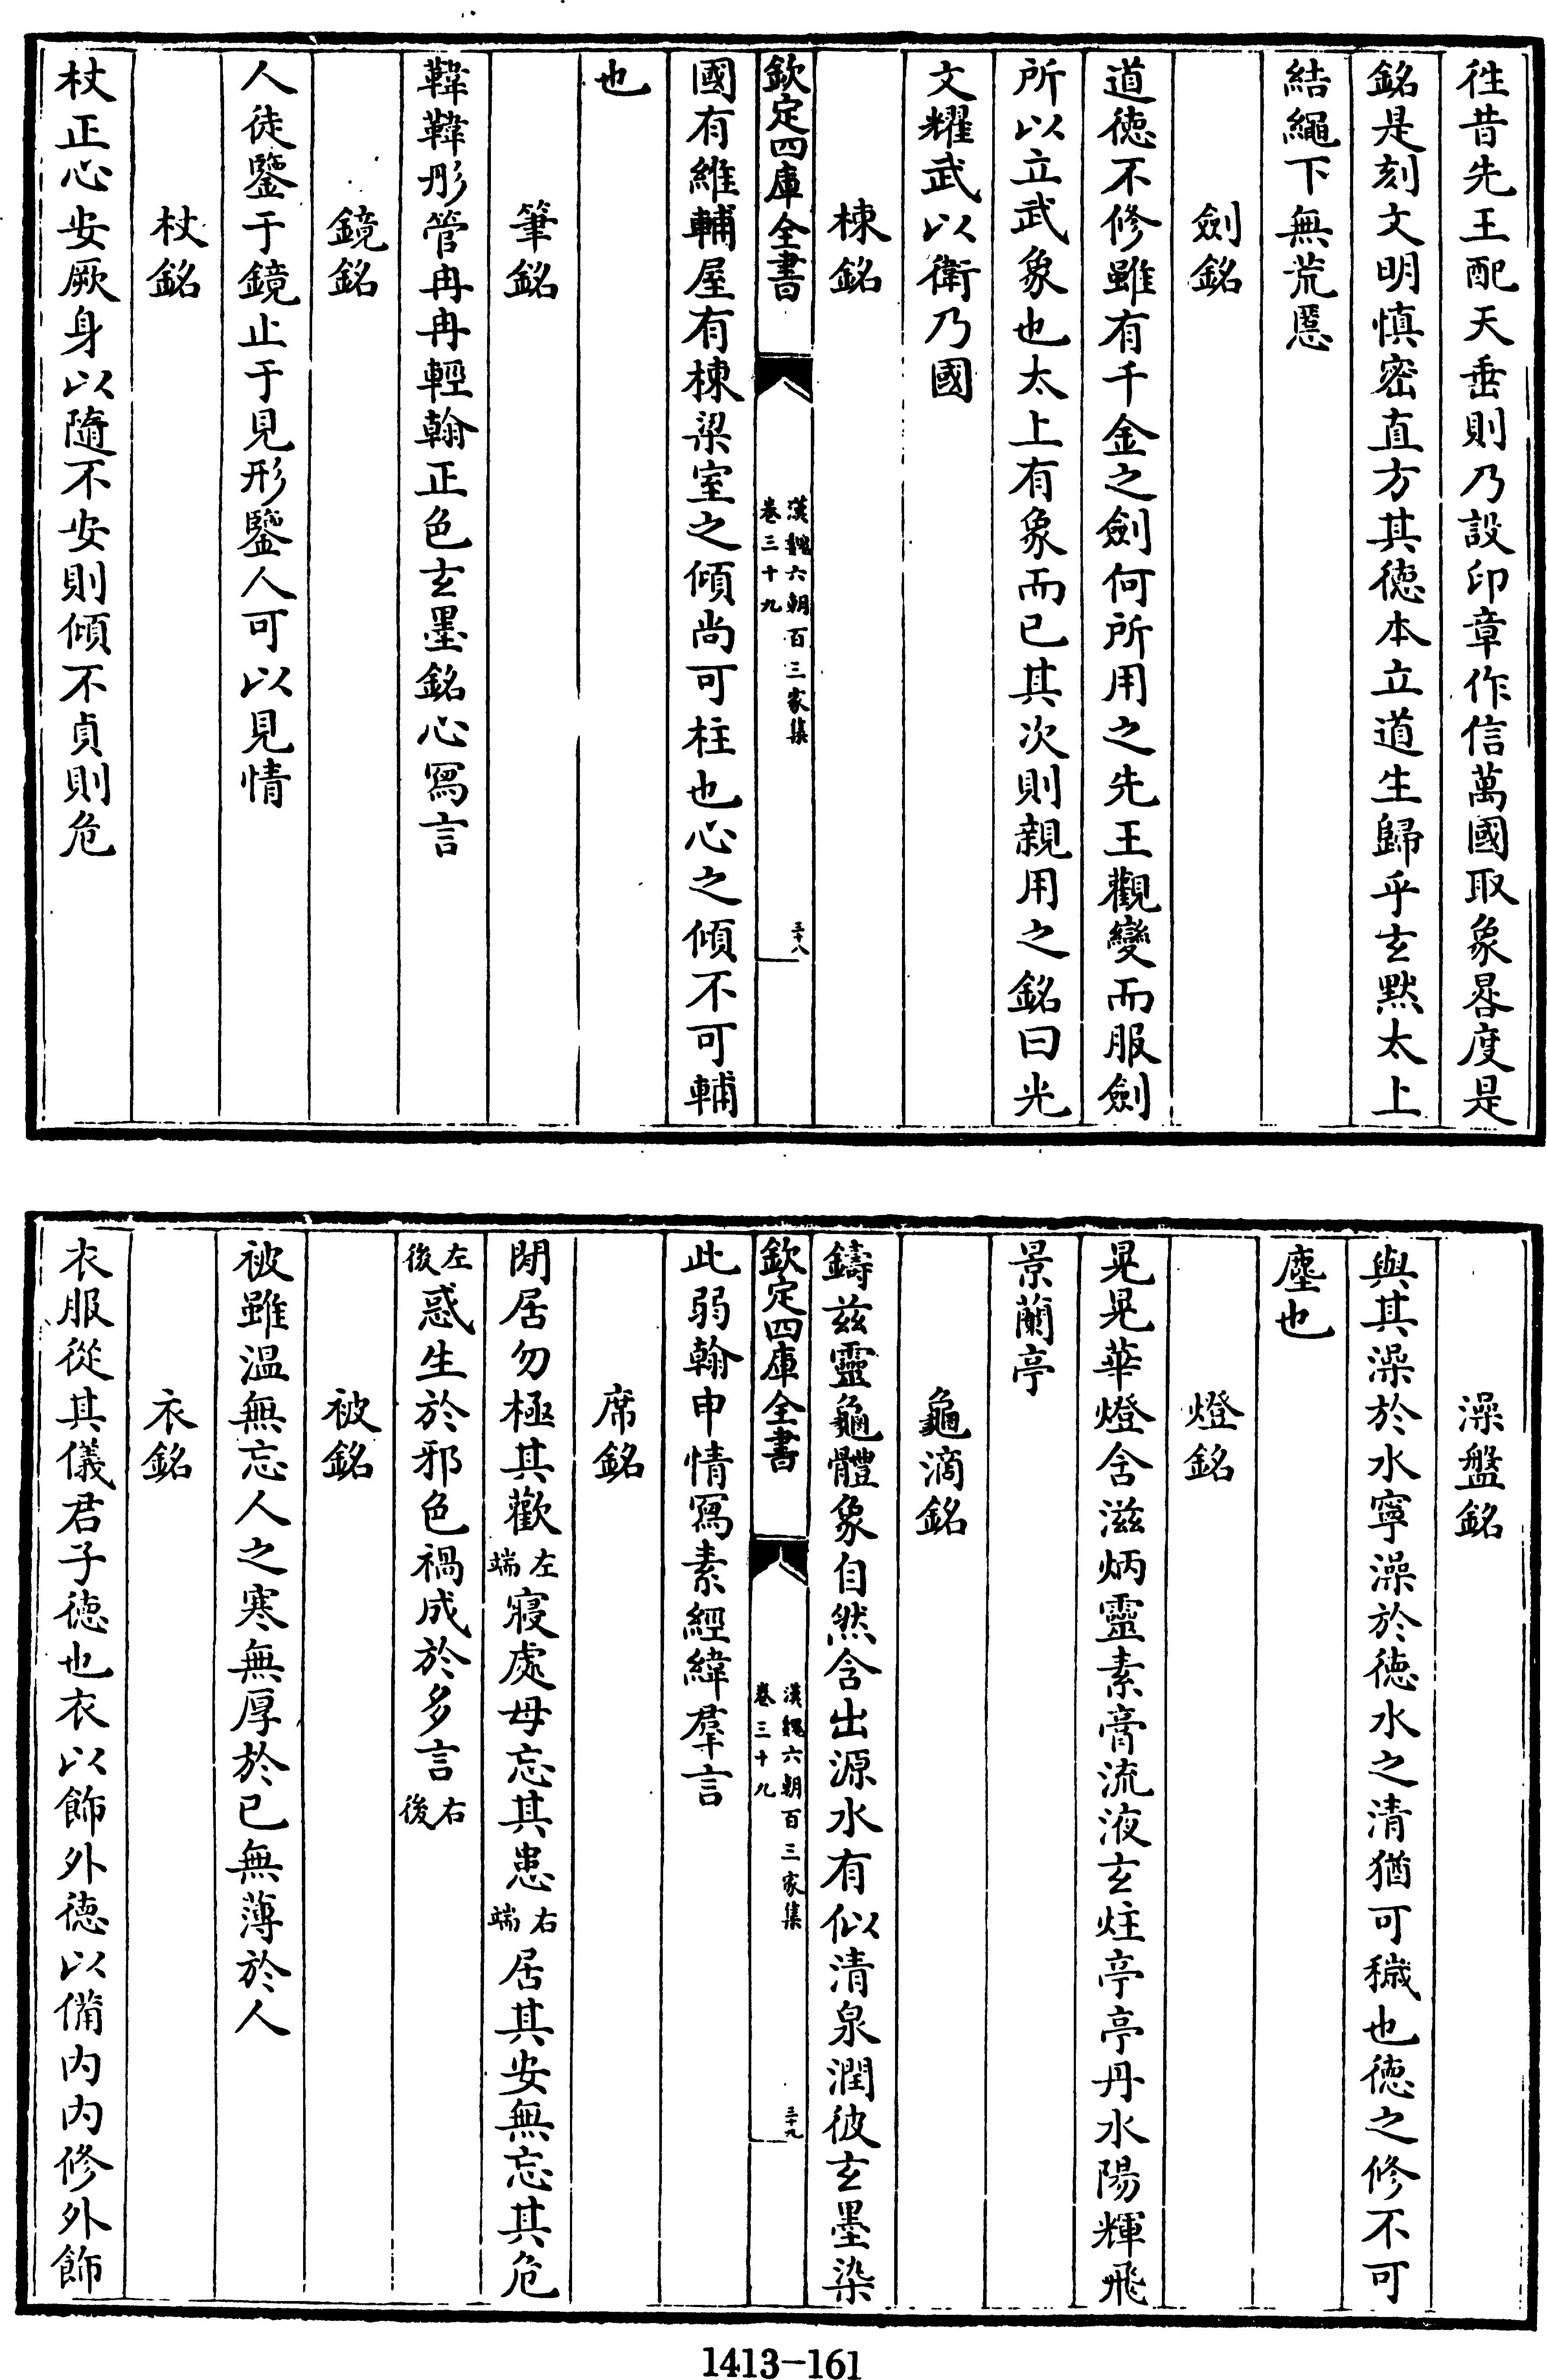 徃昔先王配天垂則乃設印章作信萬國取象晷度是
銘是刻文明慎密直方其徳本立道生歸乎玄黙太上
結繩下無荒慝
劍銘
道徳不修雖有千金之劍何所用之先王觀變而服劍
所以立武象也太上有象而已其次則親用之銘曰光
文耀武以衛乃國
楝銘
欽定四庫全書
漢魏六朝百三家集
卷三十九
三十八
國有維輔屋有楝梁室之傾尚可柱也心之傾不可輔
也
筆銘
韡韡彤管冉冉輕翰正色玄墨銘心寫言
鏡銘
人徒鑒于鏡止于見形鑒人可以見情
杖銘
杖正心安厥身以隨不安則傾不貞則危
澡盤銘
與其澡於水寧澡於徳水之清猶可穢也徳之修不可
塵也
燈銘
晃晃華燈含滋炳靈素膏流液玄炷亭亭丹水陽輝飛
景蘭亭
龜滴銘
鑄兹靈龜體象自然含出源水有似清泉潤彼玄墨染
欽定四庫全書
漢魏六朝百三家集
卷三十九
三十九
此弱翰申情寫素經緯羣言
席銘
閒居勿極其歡左端寢處毋忘其患右端居其安無忘其危
左後惑生於邪色禍成於多言右後
被銘
被雖温無忘人之寒無厚於已無薄於人
衣銘
衣服從其儀君子徳也衣以飾外徳以備内内修外飾
1413-161